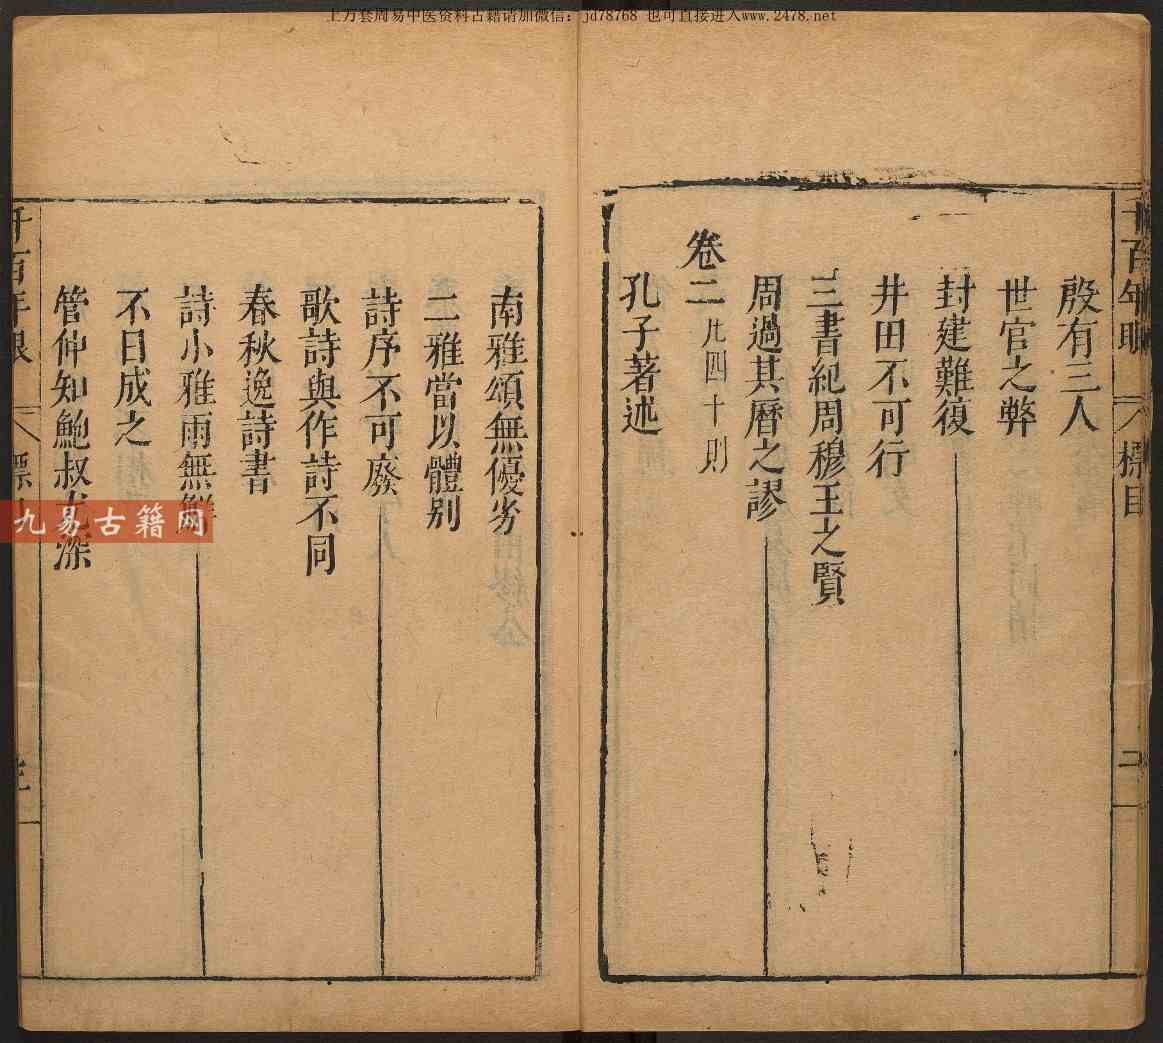 上万套周易中医资料古籍请加微信：jd78768 也可直接进入www.2478.net
千百年眼
標目
二
殷有三人
世官之弊
封建難復
井田不可行
三書紀周穆王之賢
周過其曆之謬
卷二 凡四十則
孔子著述
南雅頌無優劣
二雅當以體别
詩序不可廢
歌詩與作詩不同
春秋逸詩書
詩小雅雨無
不日成之
管仲知鮑叔尤深
千百年眼
標
九易古籍网